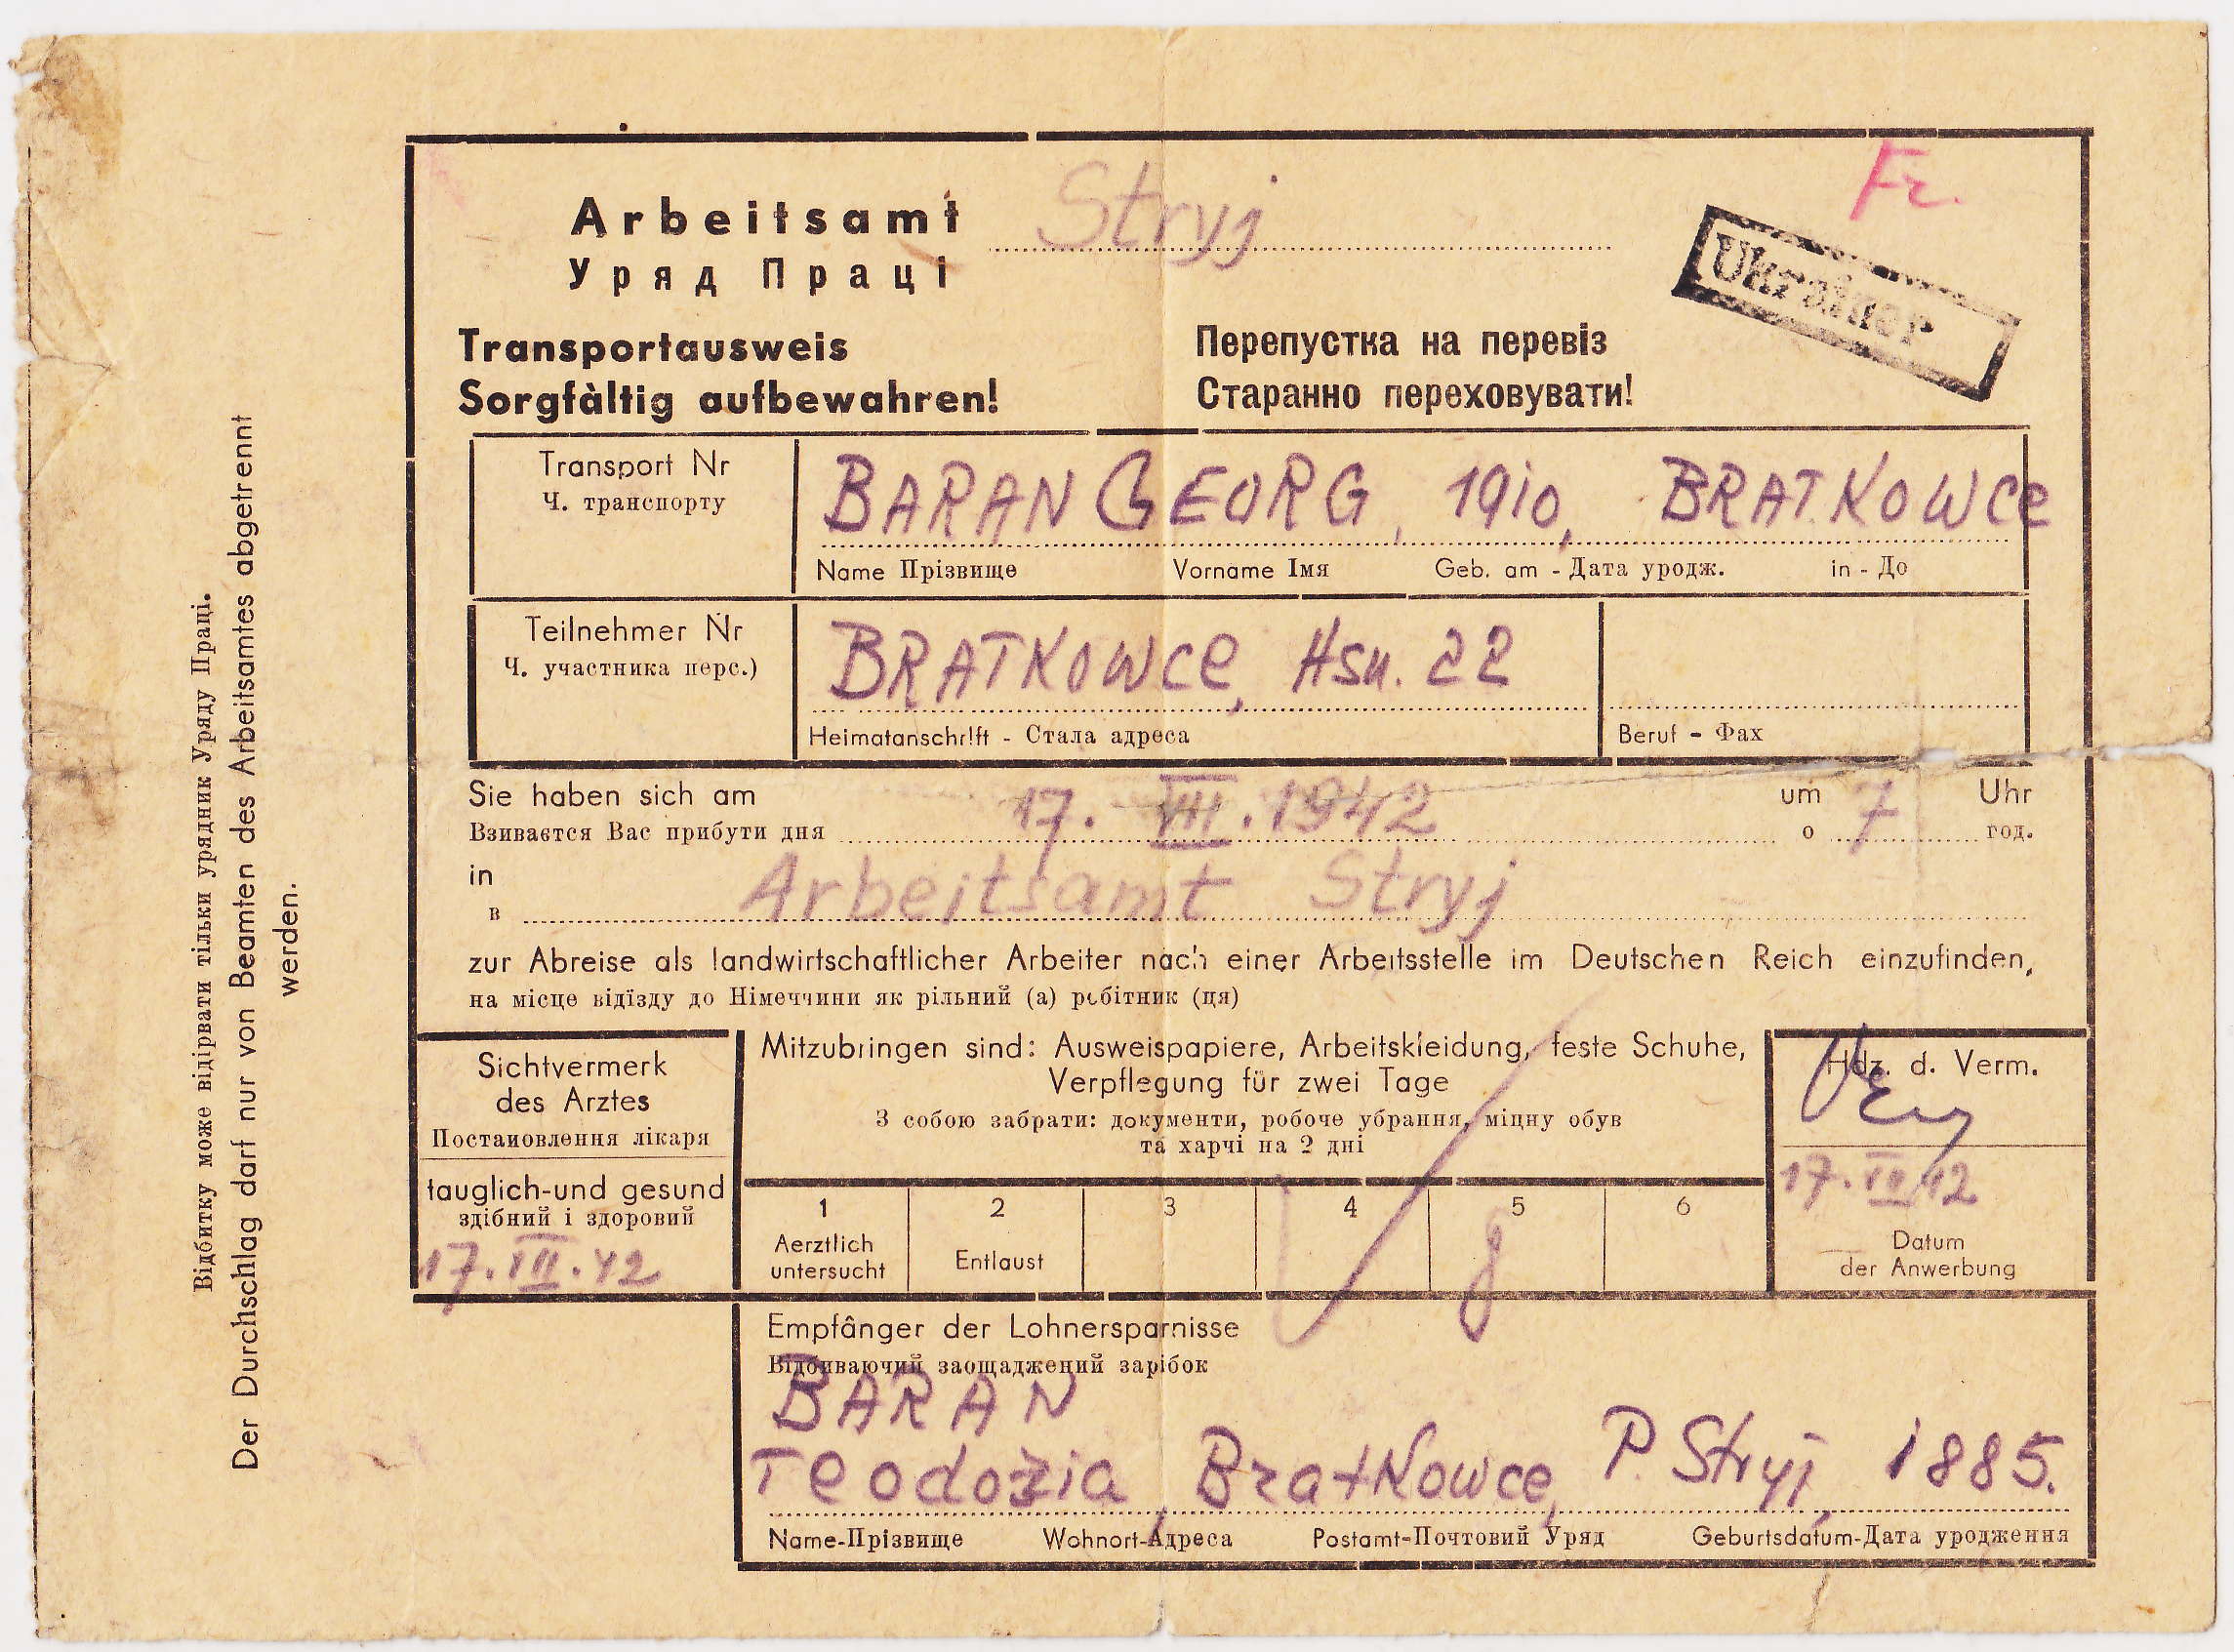 Fr.
Arbeitsamt Stryj
Уряд Праці
Ukrainer
Transportausweis Перепустка на перевіз
Sorgfàltig aufbewahren! Старанно переховувати!
Transport Nr
Ч. транспорту
BARAN GEORG, 1910, BRATKOWCE
Name Прізвище Vorname Імя Geb. am - Дата уродж. in - До
Teilnehmer Nr
Ч. участника перс.)
BRATKOWCE, Hsn. 22
Heimatanschrift - Стала адреса Beruf - Фах
Sie haben sich am 17. VIII. 1942 um 7 Uhr
Взивається Вас прибути дня о год.
in Arbeitsamt Stryj
в
zur Abreise als landwirtschaftlicher Arbeiter nach einer Arbeitsstelle im Deutschen Reich einzufinden,
на місце відїзду до Німеччини як рільний (а) робітник (ця)
Sichtvermerk
des Arztes
Постановлення лікаря
tauglich-und gesund
здібний і здоровий
17. VIII. 42
Mitzubringen sind: Ausweispapiere, Arbeitskleidung, feste Schuhe,
Verpflegung für zwei Tage
З собою забрати: документи, робоче убрання, міцну обув
та харчі на 2 дні
Hdz. d. Verm.
17. VII 42
Datum
der Anwerbung
1 2 3 4 5 6
Aerztlich
untersucht
Entlaust
Empfânger der Lohnersparnisse
Відбиваючий заощаджений зарібок
BARAN
Teodozia, Bratkowce, P. Stryj, 1885.
Name-Прізвище Wohnort-Адреса Postamt-Почтовий Уряд Geburtsdatum-Дата уродження
Відбитку може відірвати тільки урядник Уряду Праці.
Der Durchschlag darf nur von Beamten des Arbeitsamtes abgetrennt
werden.